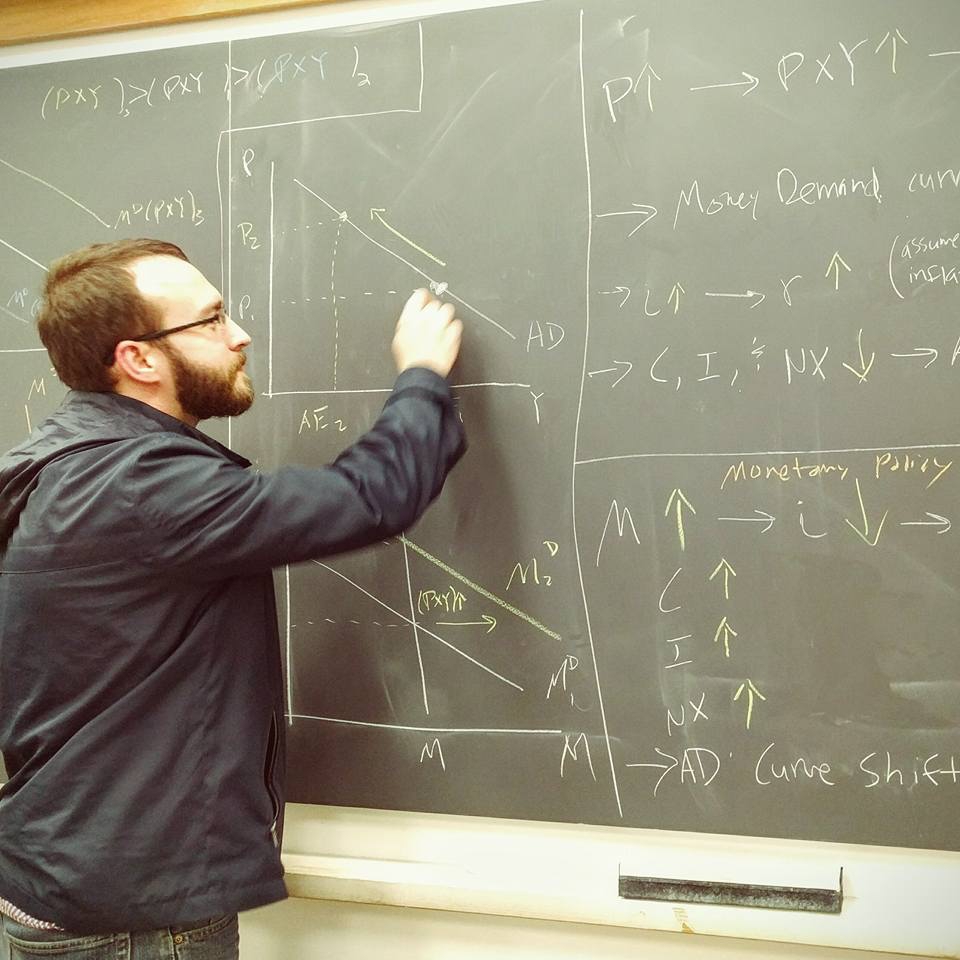 (PXY)₃>(PXY )>(PXY )₂
Mᴰ(PXY)₃
P
P₂
P₁
AD
AE₂
Y
(PXY)↑
M₂ᴰ
M₁ᴰ
M
M
P↑ → PXY↑ →
→ Money Demand curv
→ i↑ → r↑ (assume
infla
→ C, I, & NX ↓ → A
Monetary Policy
M ↑ → i ↓ →
C ↑
I ↑
NX ↑
→ AD Curve Shift